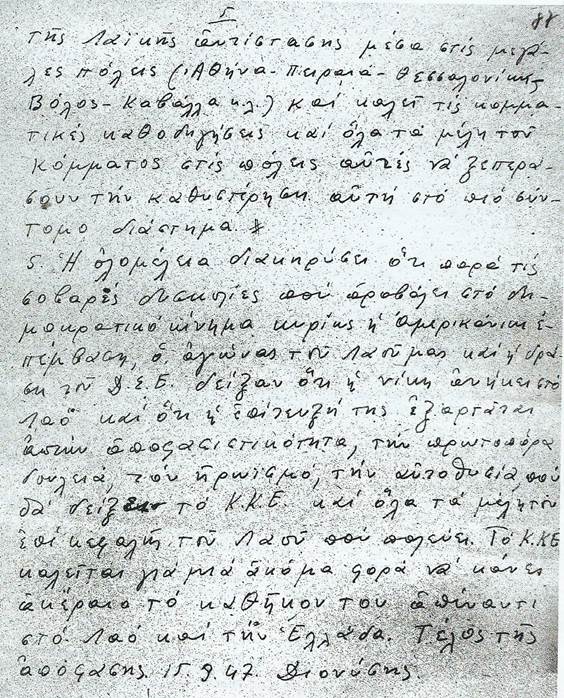 Γ 88
τῆς λαϊκῆς ἀντίστασης μέσα στίς μεγά-
λες πόλεις (Ἀθήνα-Πειραιά-Θεσσαλονίκη-
Βόλος-Καβάλλα κ.λ.) καί καλεῖ τίς κομμα-
τικές καθοδηγήσεις καί ὅλα τά μέλη τοῦ
κόμματος στίς πόλεις αὐτές νά ξεπερά-
σουν τήν καθυστέρηση αὐτή στό πιό σύν-
τομο διάστημα.
5 Ἡ ὁλομέλεια διακηρύσει ὅτι παρά τίς
σοβαρές δυσκολίες πού προβάλει στό δη-
μοκρατικό κίνημα κυρίως ἡ ἀμερικάνικη ἐ-
πέμβαση, ὁ ἀγώνας τοῦ λαοῦ μας καί ἡ δρά-
ση τοῦ Δ.Σ.Ε. δείξαν ὅτι ἡ νίκη ἀνήκει στό
λαό καί ὅτι ἡ ἐπίτευξή της ἐξαρτᾶται
ἀπ'τήν ἀποφασιστικότητα, τήν πρωτοπόρα
δουλειά, τόν ἡρωϊσμό, τήν αὐτοθυσία πού
θά δείξει τό Κ.Κ.Ε. καί ὅλα τά μέλη του
ἐπί κεφαλῆς τοῦ λαοῦ πού παλεύει. Τό Κ.ΚΕ
καλεῖται γιά μιά ἀκόμα φορά νά κάνει
ἀκέραιο τό καθῆκον του ἀπέναντι
στό λαό καί τήν Ἑλλάδα. Τέλος τῆς
ἀπόφασης. 15.9.47. Διονύσης.